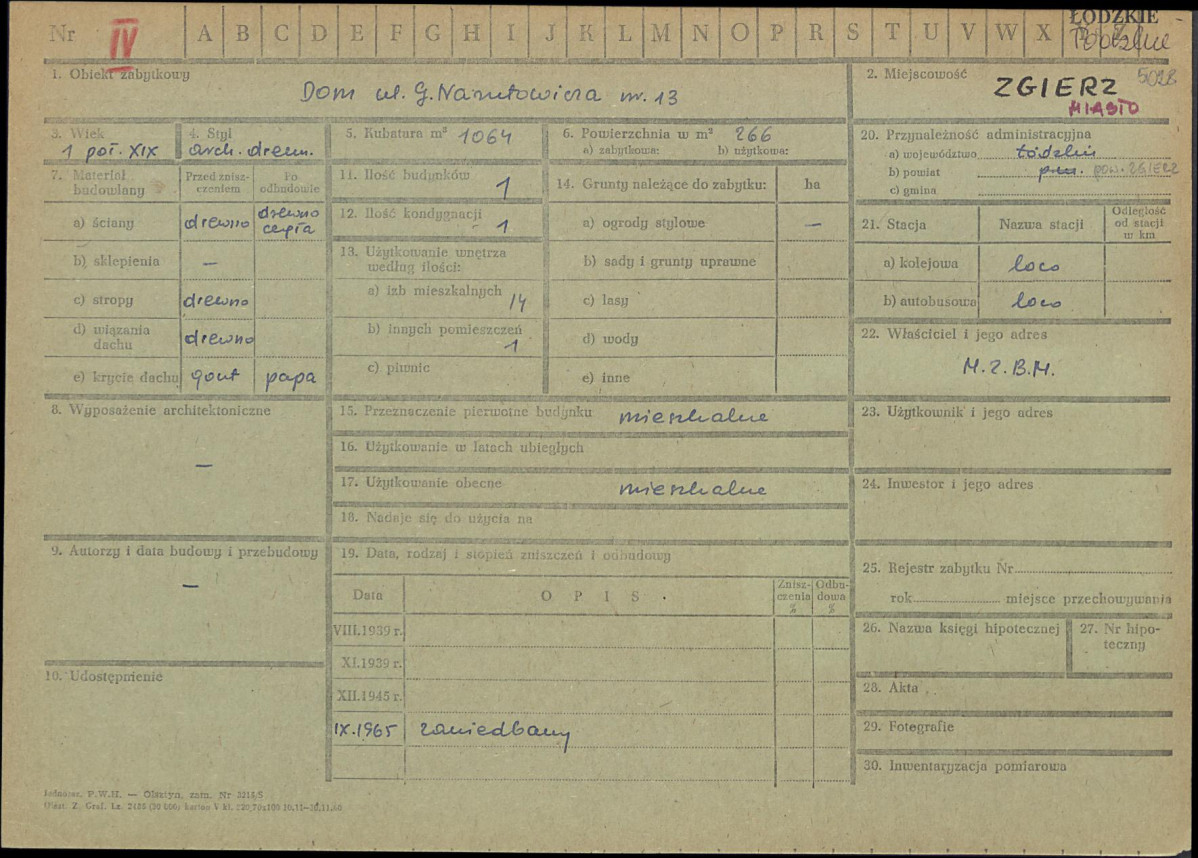 Nr IV A B C D E F G H I J K L M N O P R S T U V W X ŁÓDZKIE
1. Obiekt zabytkowy
Dom ul. G. Narutowicza nr. 13
2. Miejscowość
ZGIERZ 5028
MIASTO
3. Wiek
1 poł. XIX
4. Styl
arch. drewn.
5. Kubatura m³ 1064
6. Powierzchnia w m² 266
a) zabytkowa: b) użytkowa:
7. Materiał budowlany
Przed znisz-
czeniem
Po
odbudowie
a) ściany drewno drewno
cegła
b) sklepienia —
c) stropy drewno
d) wiązania
dachu drewno
e) krycie dachu gont papa
8. Wyposażenie architektoniczne
—
9. Autorzy i data budowy i przebudowy
—
10. Udostępnienie
11. Ilość budynków
1
12. Ilość kondygnacji
1
13. Użytkowanie wnętrza
według ilości:
a) izb mieszkalnych
14
b) innych pomieszczeń
1
c) piwnic
14. Grunty należące do zabytku: ha
a) ogrody stylowe —
b) sady i grunty uprawne
c) lasy
d) wody
e) inne
15. Przeznaczenie pierwotne budynku mieszkalne
16. Użytkowanie w latach ubiegłych
17. Użytkowanie obecne mieszkalne
18. Nadaje się do użycia na
19. Data, rodzaj i stopień zniszczeń i odbudowy
Data O P I S Znisz-
czenia
% Odbu-
dowa
%
VIII.1939 r.
XI.1939 r.
XII.1945 r.
IX.1965 zaniedbany
20. Przynależność administracyjna
a) województwo Łódzkie
b) powiat pow. POW. ZGIERZ
c) gmina
21. Stacja Nazwa stacji Odległość
od stacji
w km
a) kolejowa loco
b) autobusowa loco
22. Właściciel i jego adres
M.Z.B.M.
23. Użytkownik i jego adres
24. Inwestor i jego adres
25. Rejestr zabytku Nr
rok miejsce przechowywania
26. Nazwa księgi hipotecznej
27. Nr hipo-
teczny
28. Akta
29. Fotografie
30. Inwentaryzacja pomiarowa
P.W.H. — Olsztyn, zam. Nr 3215/S